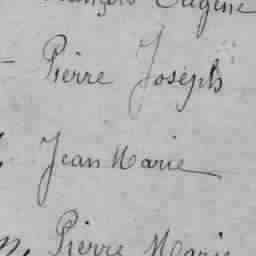 François Eugène
Pierre Joseph
Jean Marie
Pierre Marie